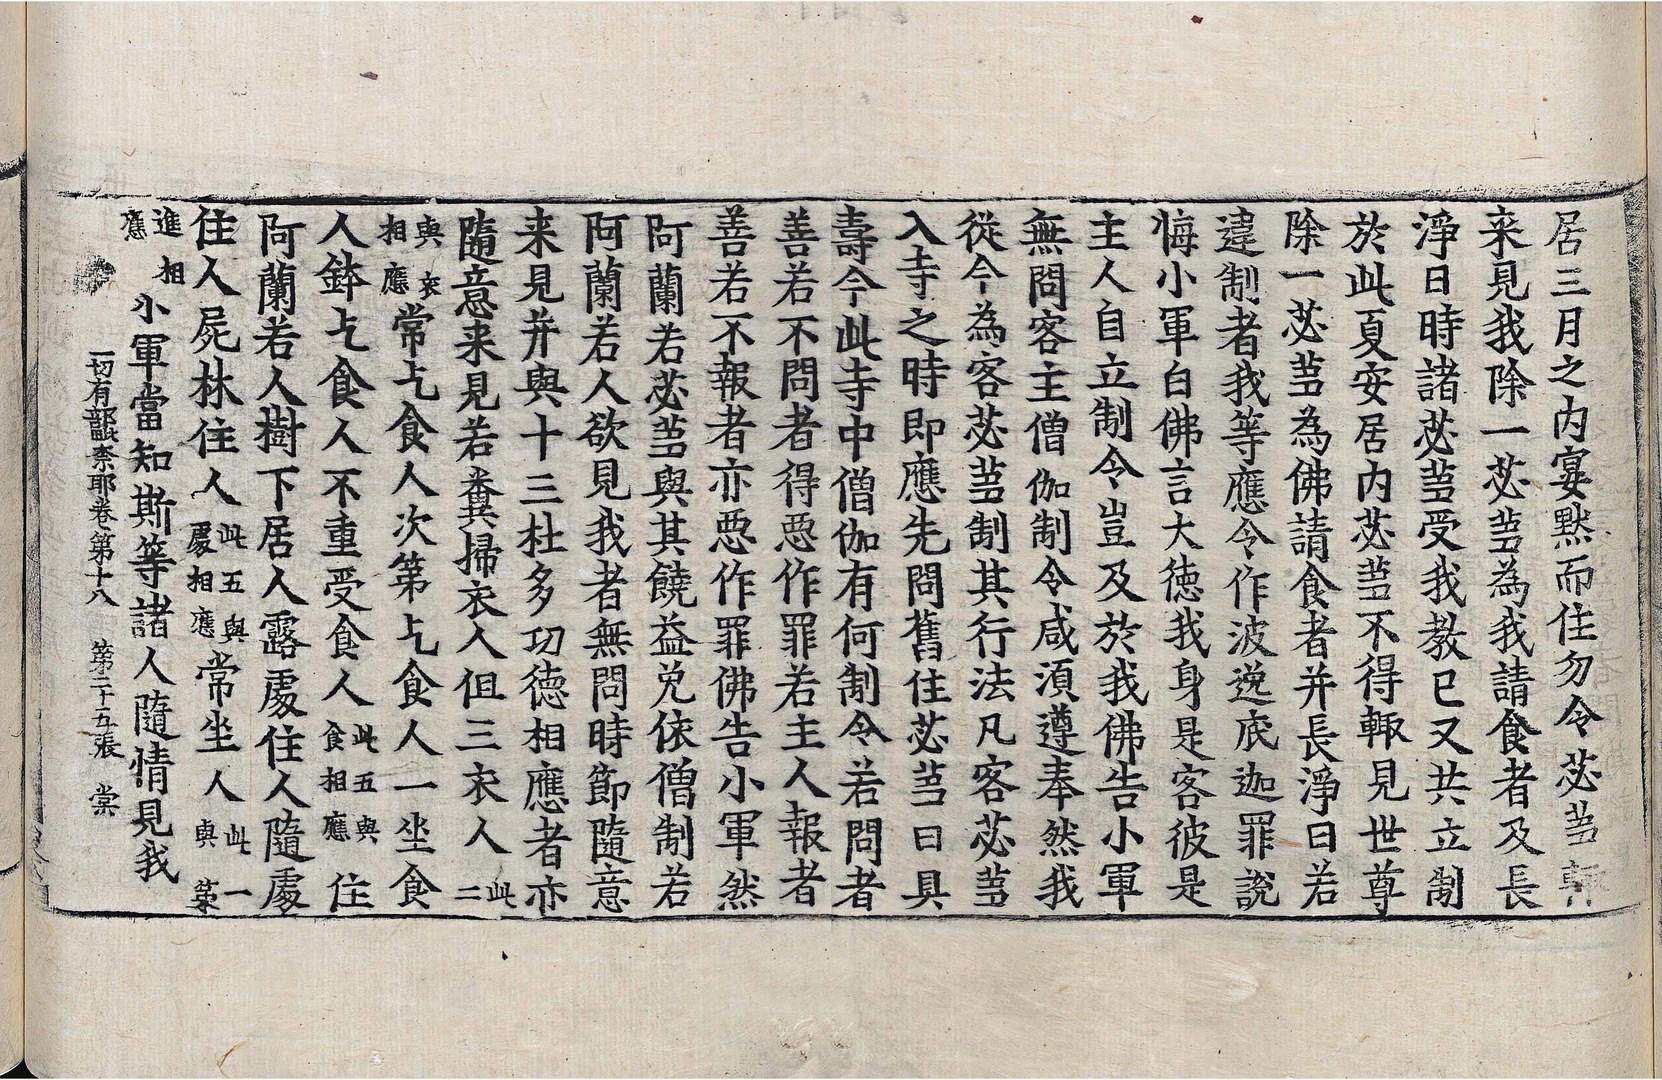 居三月之內宴默而住勿令苾芻輙
来見我除一苾芻為我請食者及長
淨日時諸苾芻受我教已又共立制
於此夏安居内苾芻不得輙見世尊
除一苾芻為佛請食者并長淨日若
違制者我等應令作波逸底迦罪說
悔小軍白佛言大徳我身是客彼是
主人自立制令豈及於我佛告小軍
無問客主僧伽制令咸湏遵奉然我
從今為客苾芻制其行法凡客苾芻
入寺之時即應先問舊住苾芻曰具
壽今此寺中僧伽有何制令若問者
善若不問者得惡作罪若主人報者
善若不報者亦惡作罪佛告小軍然
阿蘭若苾芻與其饒益兊依僧制若
阿蘭若人欲見我者無問時節隨意
来見并與十三杜多㓛徳相應者亦
隨意来見若糞掃衣人但三衣人此二
與衣相應常乞食人次第乞食人一坐食
人鉢乞食人不重受食人此五與食相應住
阿蘭若人樹下居人露處住人隨處
住人屍林住人此五與處相應常坐人此一與策
進相應小軍當知斯等諸人隨情見我
一切有部毗柰耶卷第十八 第二十五張 棠